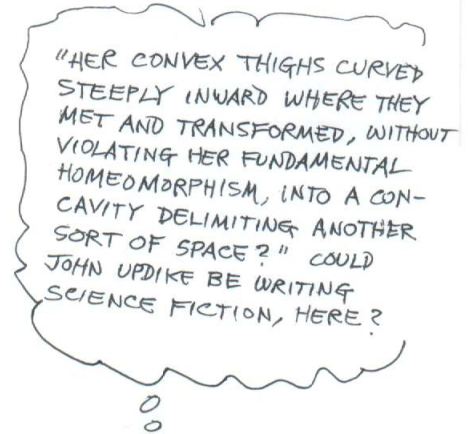 "HER CONVEX THIGHS CURVED
STEEPLY INWARD WHERE THEY
MET AND TRANSFORMED, WITHOUT
VIOLATING HER FUNDAMENTAL
HOMEOMORPHISM, INTO A CON-
CAVITY DELIMITING ANOTHER
SORT OF SPACE?" COULD
JOHN UPDIKE BE WRITING
SCIENCE FICTION, HERE?